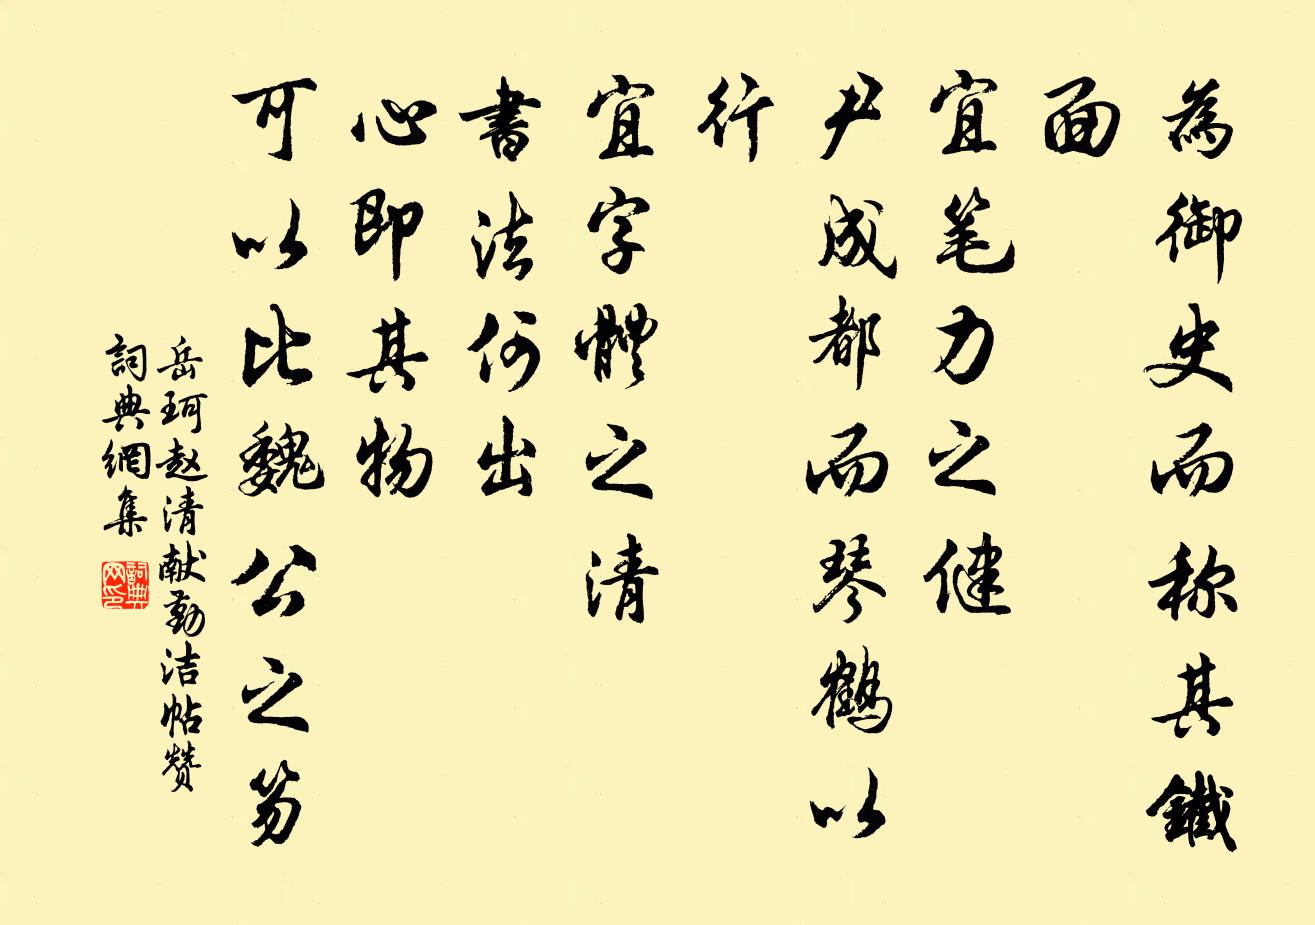 為御史而称其鐵
面
宜笔力之健
尹成都而琴鶴以
行
宜字體之清
書法何出
心即其物
可以比魏公之笏
岳珂赵清献勤洁帖赞
詞典網集
詞典网印